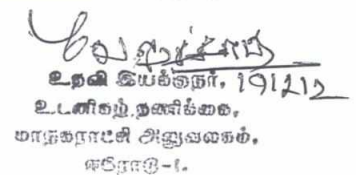 உதவி இயக்குநர், 191212
உடனிகழ் தணிக்கை,
மாநகராட்சி அலுவலகம்,
ஈரோடு-1.